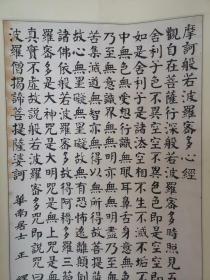 摩訶般若波羅密多心經
觀自在菩薩行深般若波羅密多時照見五
舍利子色不異空空不異色色即是空空
如是舍利子是諸法空相不生不滅不垢不
中無色無受想行識無眼耳鼻舌身意無色
乃至無意識界無無明亦無無明盡乃至無
苦集滅道無智亦無得以無所得故菩提薩
故心無罣礙無罣礙故無有恐怖遠離顛倒
諸佛依般若波羅密多故得阿耨多羅三藐
羅密多是大神咒是大明咒是無上咒是無
真實不虛故說般若波羅密多咒即說咒曰
波羅僧揭諦菩提薩婆訶
華南居士 正